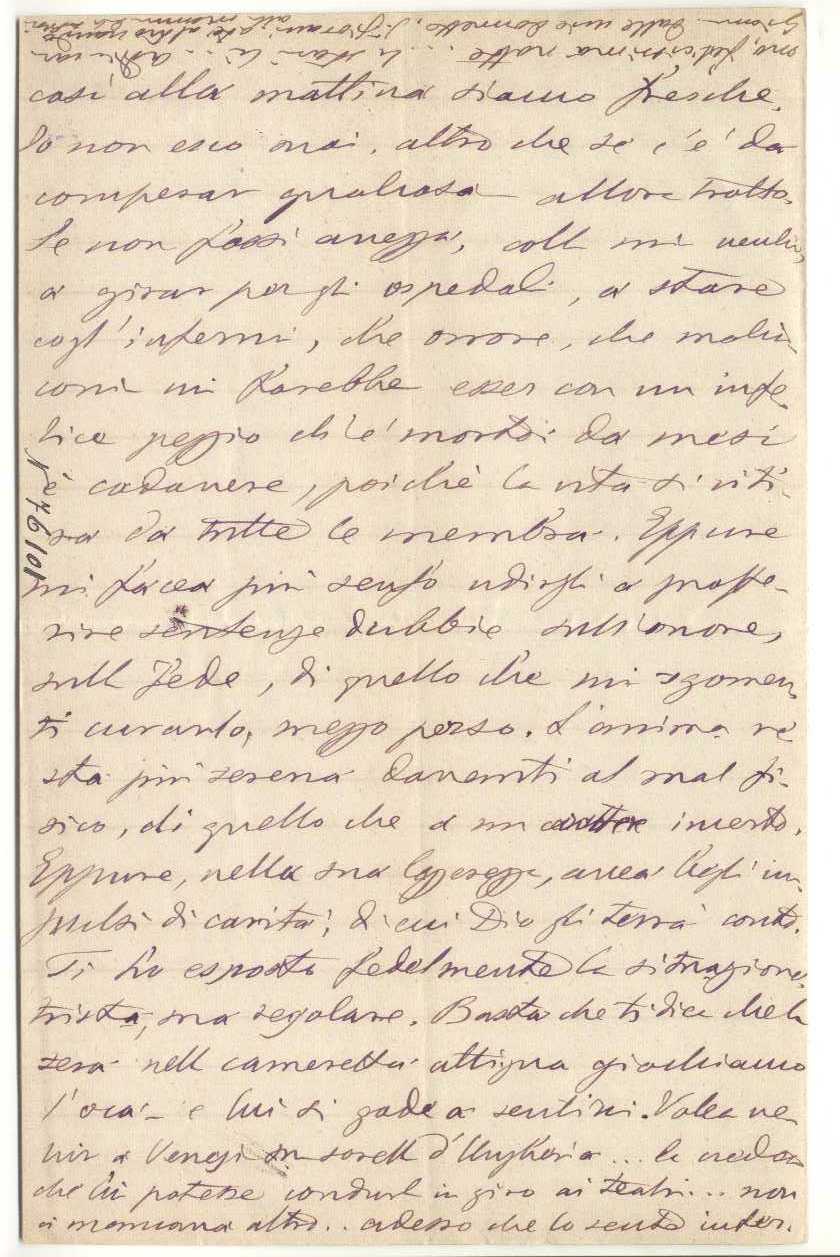 così alla mattina siamo fresche.
Io non esco mai, altro che se c'è da
comperar qualcosa allora trotto.
Se non fossi avezza, coll mi
a girar per gli ospedali, a stare
cogl'infermi, che orrore, che malin-
coni mi farebbe esser con un infe-
lice peggio ch'è morto: da mesi
è cadavere, poichè la vita si riti-
ra da tutte le membra. Eppure
mi facea più senso udirgli a proffe-
rire sentenze dubbie sull'onore,
sull fede, di quello che mi sgomen-
ti curarlo, mezzo perso. L'anima re
sta più serena davanti al mal fi-
sico, di quello che a un incerto.
Eppure, nella sua leggerezza, avea degli im-
pulsi di carità, di cui Dio gli terrà conto.
Ti ho esposto fedelmente la situazione,
trista, ma regolare. Basta che ti dica che la
sera nell cameretta attigua giochiamo
l'oca - e lui si gode a sentirci. Volea ve
nir a Venezi su sorell d'Ungheria... la credea
che lui potesse condurl in giro ai teatri... non
ci mancava altro.. adesso che lo sento infer.
N° 76/01
mo, felicissima notte